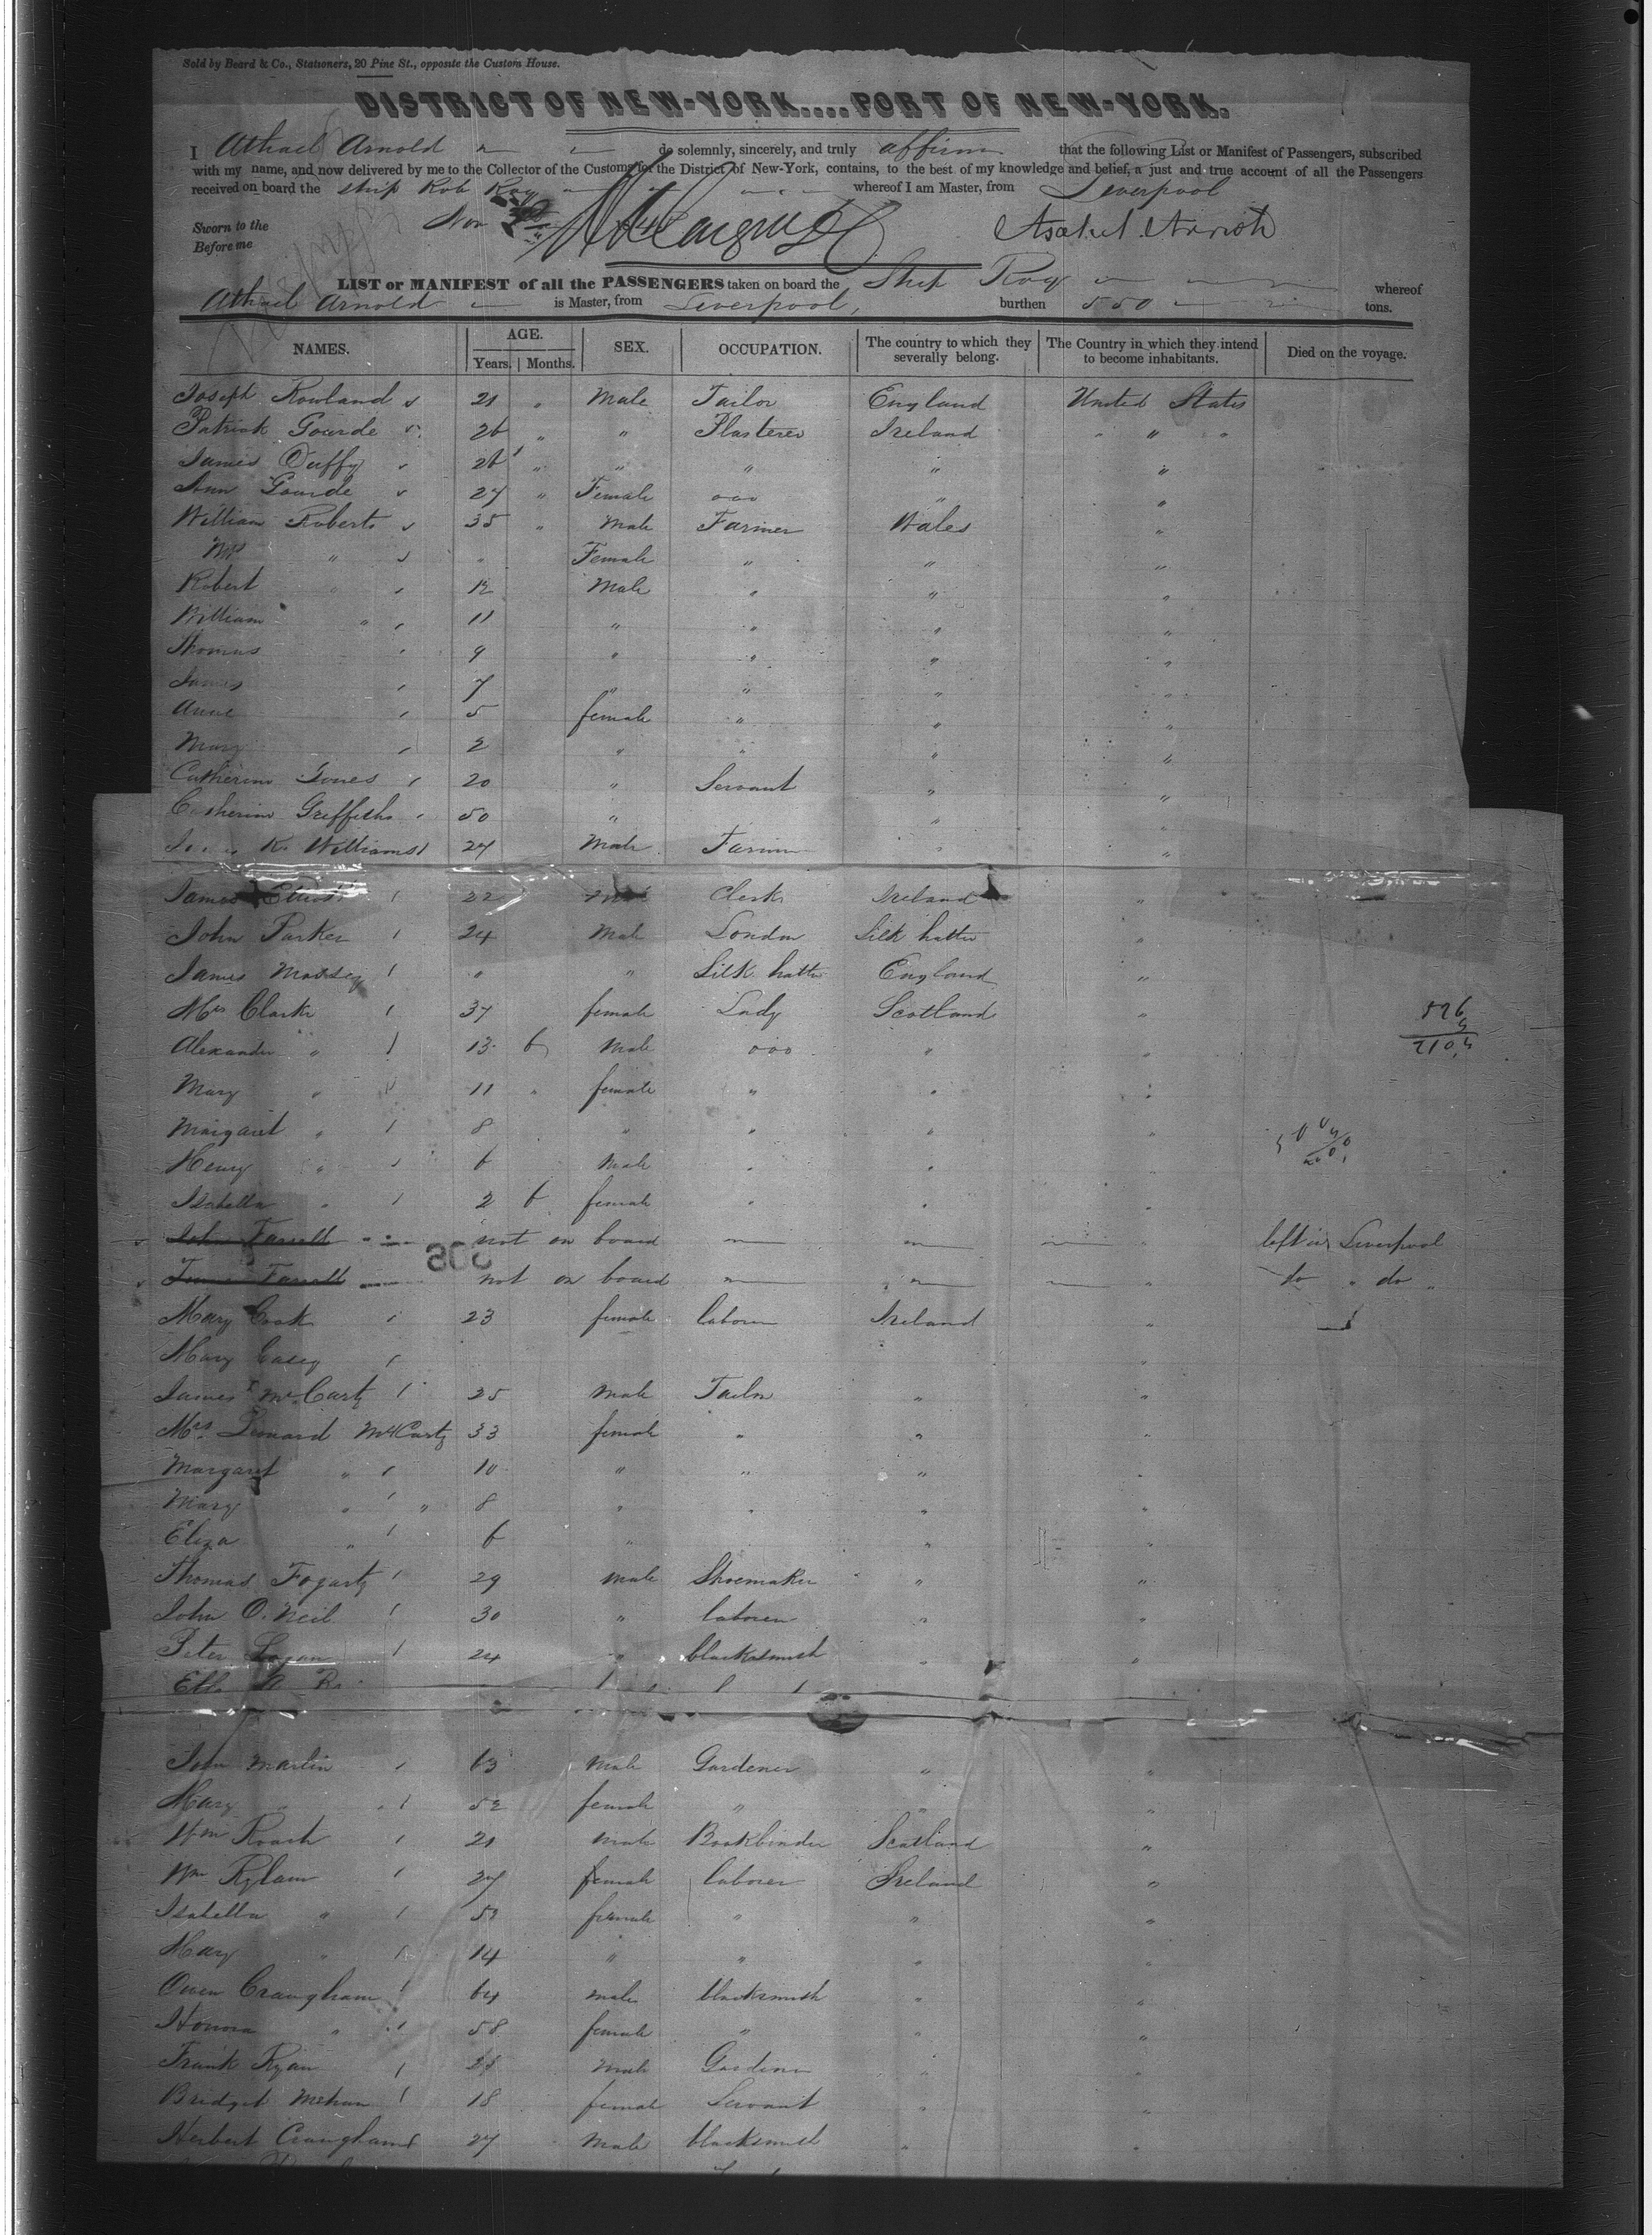 Sold by Beard & Co., Stationers, 20 Pine St., opposite the Custom House.
DISTRICT OF NEW-YORK....PORT OF NEW-YORK.
I Athael Arnold do solemnly, sincerely, and truly affirm that the following List or Manifest of Passengers, subscribed
with my name, and now delivered by me to the Collector of the Customs for the District of New-York, contains, to the best of my knowledge and belief, a just and true account of all the Passengers
received on board the ship Rob Roy whereof I am Master, from Liverpool
Sworn to the Nov
Before me
LIST or MANIFEST of all the PASSENGERS taken on board the Ship Roy whereof
Athael Arnold is Master, from Liverpool, burthen 550 tons.
NAMES. AGE. Years. Months. SEX. OCCUPATION. The country to which they severally belong. The Country in which they intend to become inhabitants. Died on the voyage.
Joseph Rowland 21 " Male Tailor England United States
Patrick Gourde 26 " " Plasterer Ireland " " "
James Duffy 26 " " " " "
Ann Gourde 27 " Female ooo " "
William Roberts 35 " Male Farmer Wales "
Mrs " " Female " " "
Robert " 12 Male " " "
William " 11 " " " "
Thomas 9 " " " "
James 7 " " " "
Anne 5 female " " "
Mary 2 " " " "
Catherine Jones 20 " Servant " "
Catherine Griffiths 50 " " "
K. Williams 27 Male Farmer " "
James Elliott 22 Clerk Ireland "
John Parker 24 Male London Silk hatter "
James Massey " " Silk hatter England "
Mrs Clark 37 female Lady Scotland "
526
5
210,5
Alexander " 13 6 Male ooo " "
Mary " 11 " female " " "
Margaret " 8 " " " "
Henry " 6 Male " " "
Isabella " 2 6 female " " "
John Farrell not on board " left in Liverpool
805
James Farrell not on board " do " do "
Mary Cook 23 female laborer Ireland "
Mary Casey "
James McCarty 25 Male Tailor " "
Mrs. Leonard McCarty 33 female " " "
Margaret " 10 " " " "
Mary " " 8 " " " "
Eliza " 6 " " "
Thomas Fogarty 29 male Shoemaker " "
John O. Neil 30 " laborer " "
Peter Logan 24 " blacksmith " "
John Martin 63 Male Gardener " "
Mary " 52 female " " "
Wm Roach 21 male Bookbinder Scotland "
Wm Rylam 27 female laborer Ireland "
Isabella " 50 female " " "
Mary " 14 " " " "
Owen Craugham 64 male blacksmith " "
Honora " 58 female " " "
Frank Ryan male Gardener " "
Bridget Mehan 18 female Servant " "
Herbert Craugham 27 Male blacksmith " "